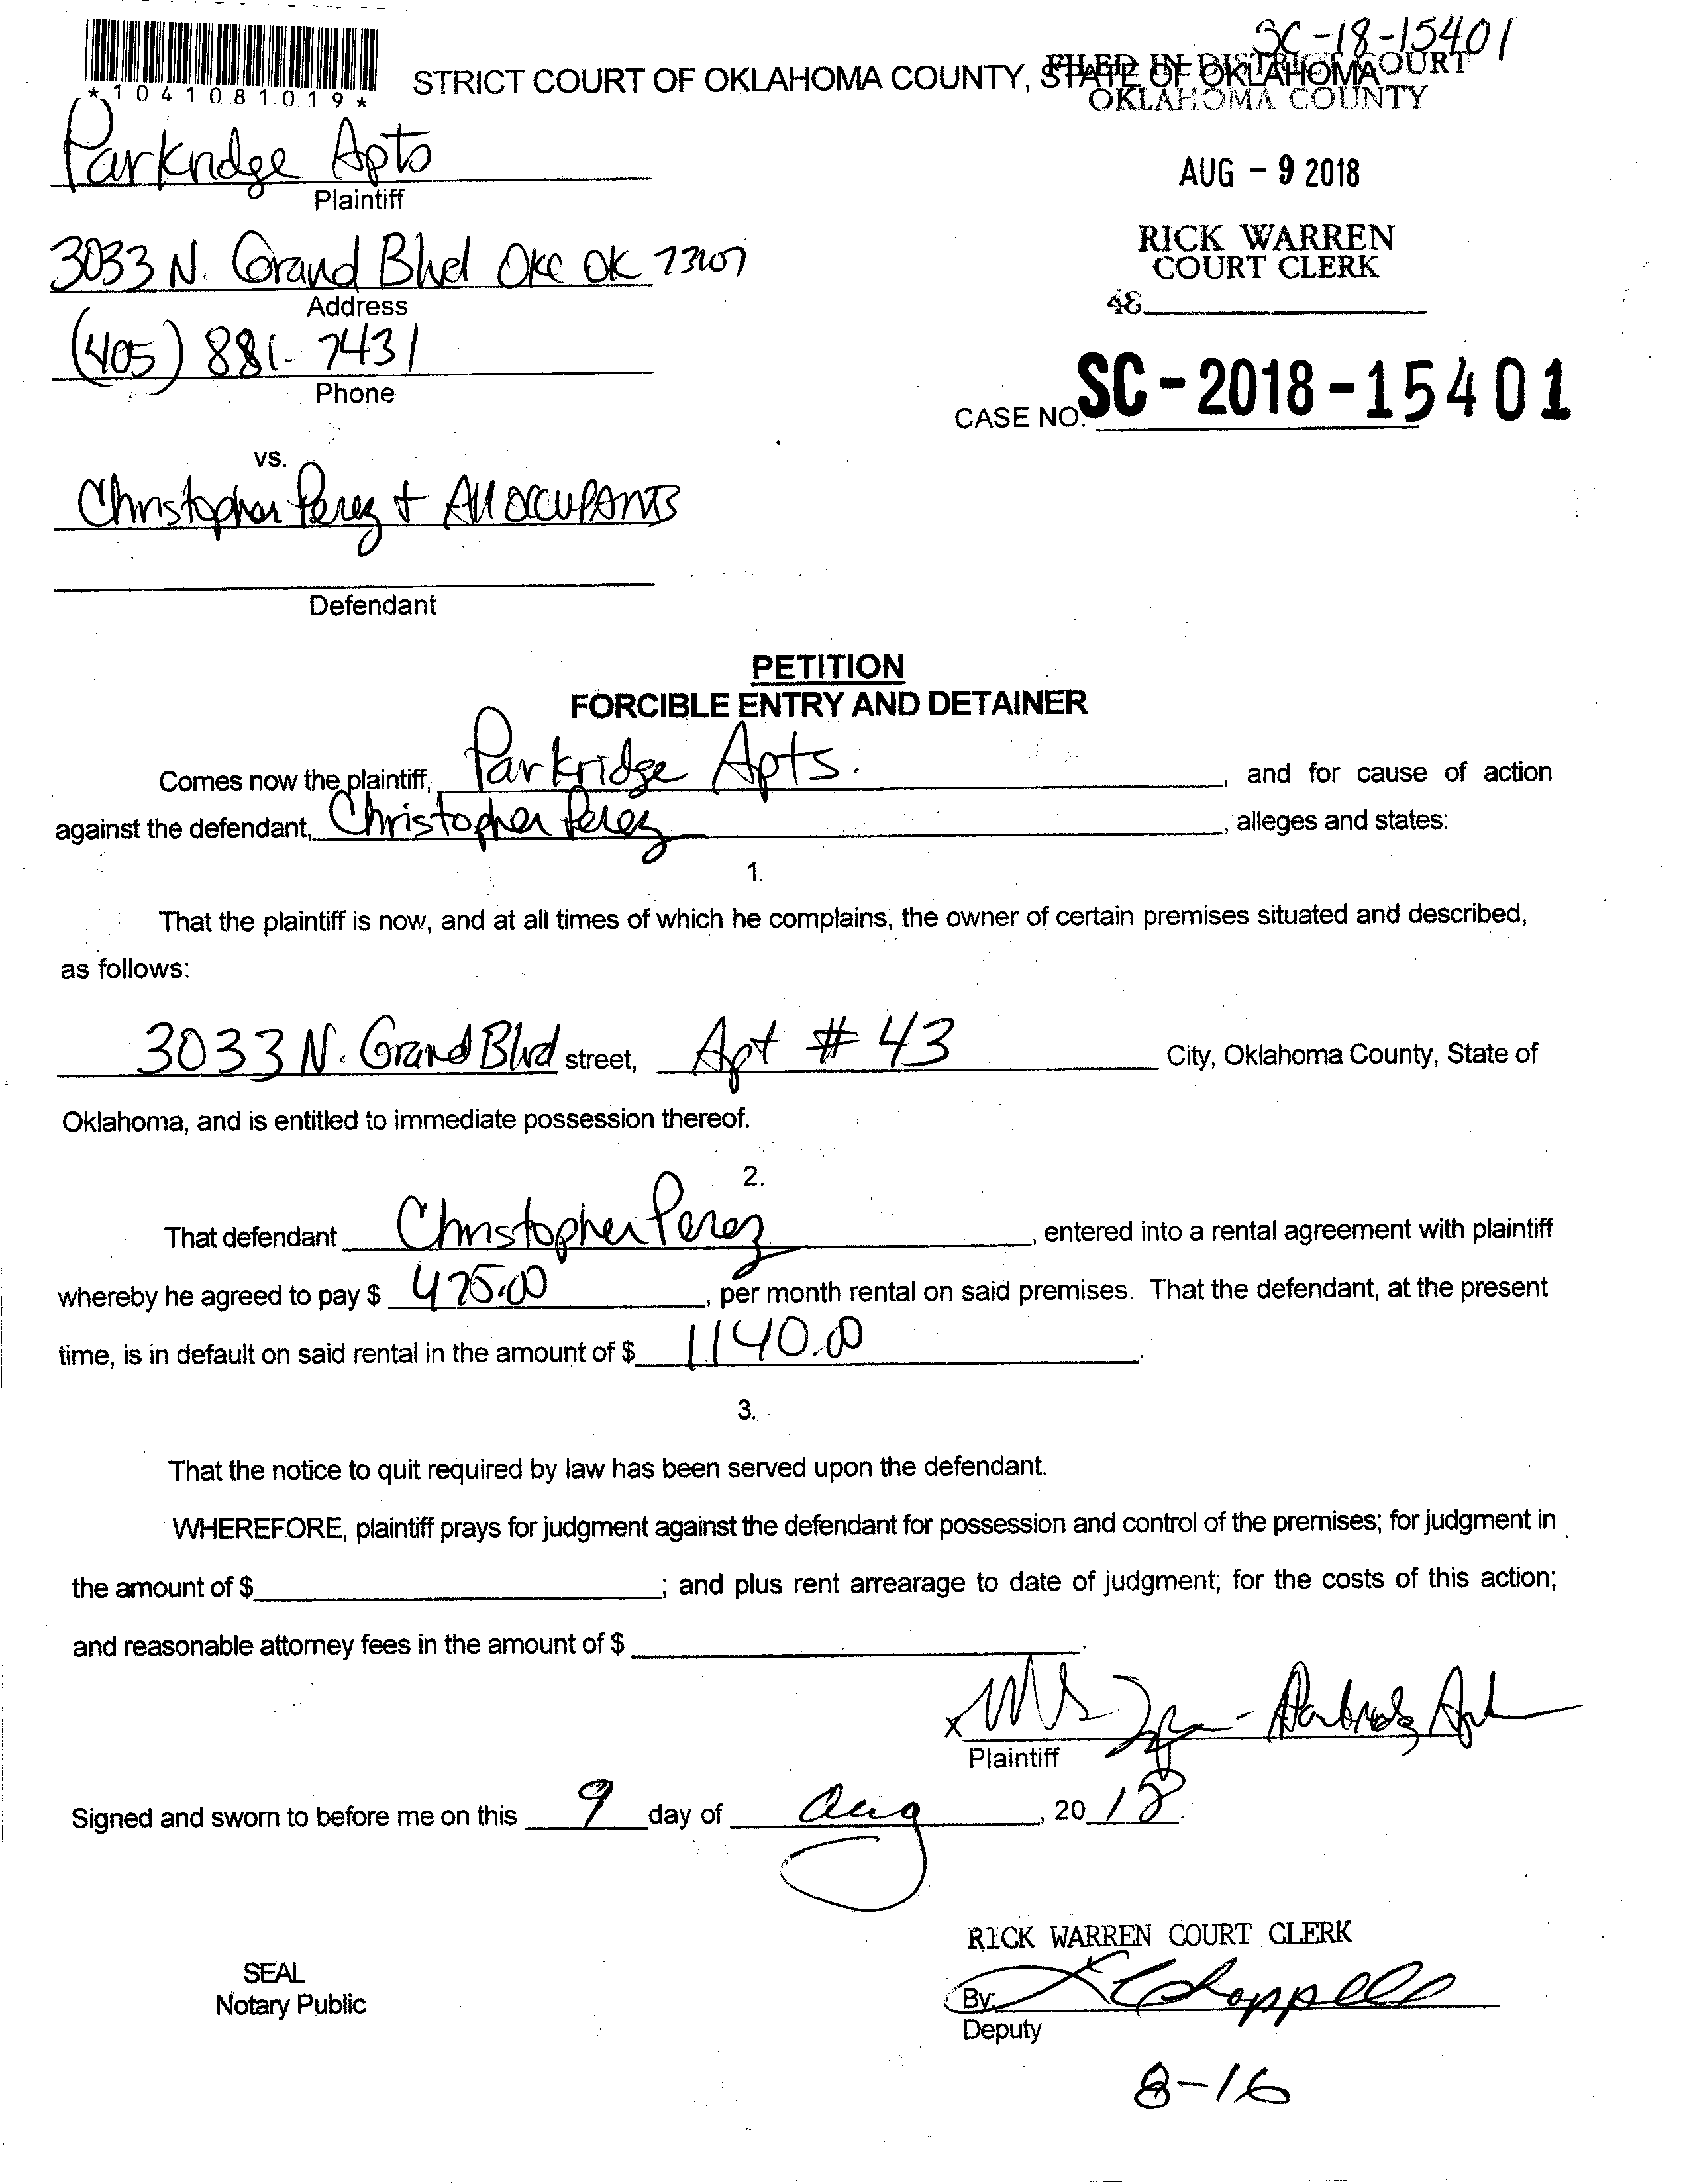 SC-18-15401
STRICT COURT OF OKLAHOMA COUNTY, STATE OF OKLAHOMA
FILED IN DISTRICT COURT
OKLAHOMA COUNTY
*1041081019*
Parkridge Apts
Plaintiff
AUG - 9 2018
RICK WARREN
COURT CLERK
48
3033 N. Grand Blvd OKC OK 73107
Address
(405) 881-7431
Phone
CASE NO. SC-2018-15401
vs.
Christopher Perez + All OCCUPANTS
Defendant
PETITION
FORCIBLE ENTRY AND DETAINER
Comes now the plaintiff, Parkridge Apts. , and for cause of action
against the defendant, Christopher Perez , alleges and states:
1.
That the plaintiff is now, and at all times of which he complains, the owner of certain premises situated and described,
as follows:
3033 N. Grand Blvd street, Apt # 43 City, Oklahoma County, State of
Oklahoma, and is entitled to immediate possession thereof.
2.
That defendant Christopher Perez , entered into a rental agreement with plaintiff
whereby he agreed to pay $ 475.00 , per month rental on said premises. That the defendant, at the present
time, is in default on said rental in the amount of $ 1140.00 .
3.
That the notice to quit required by law has been served upon the defendant.
WHEREFORE, plaintiff prays for judgment against the defendant for possession and control of the premises; for judgment in
the amount of $ ; and plus rent arrearage to date of judgment; for the costs of this action;
and reasonable attorney fees in the amount of $ .
x
Plaintiff
Signed and sworn to before me on this 9 day of Aug , 20 18.
RICK WARREN COURT CLERK
SEAL
Notary Public
By: Chappell
Deputy
8-16